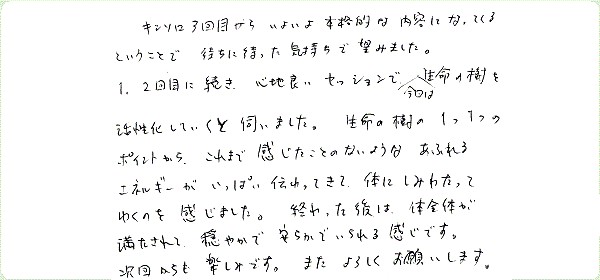 キンソロ3回目から いよいよ 本格的な内容になってくる
ということで 待ちに待った気持ちで望みました。
1、2回目に続き、心地良い セッションで 今回は 生命の樹を
活性化していくと 伺いました。 生命の樹の1つ1つの
ポイントから、これまで感じたことのないような あふれる
エネルギーが いっぱい 伝わってきて、体に しみわたって
ゆくのを 感じました。 終わった後は、体全体が
満たされて、穏やかで 安らかでいられる感じです。
次回からも 楽しみです。 また よろしく お願いします。